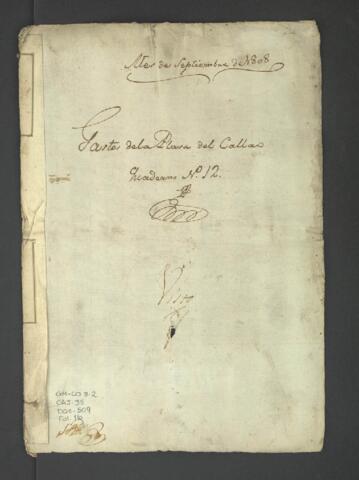 Mes de Septiembre de 1808
Gastos de la Plasa del Callao
Quaderno N.º 12.
Visto
GM-CO 3-2
CAJ. 35
DOC. 509
Fol. 112